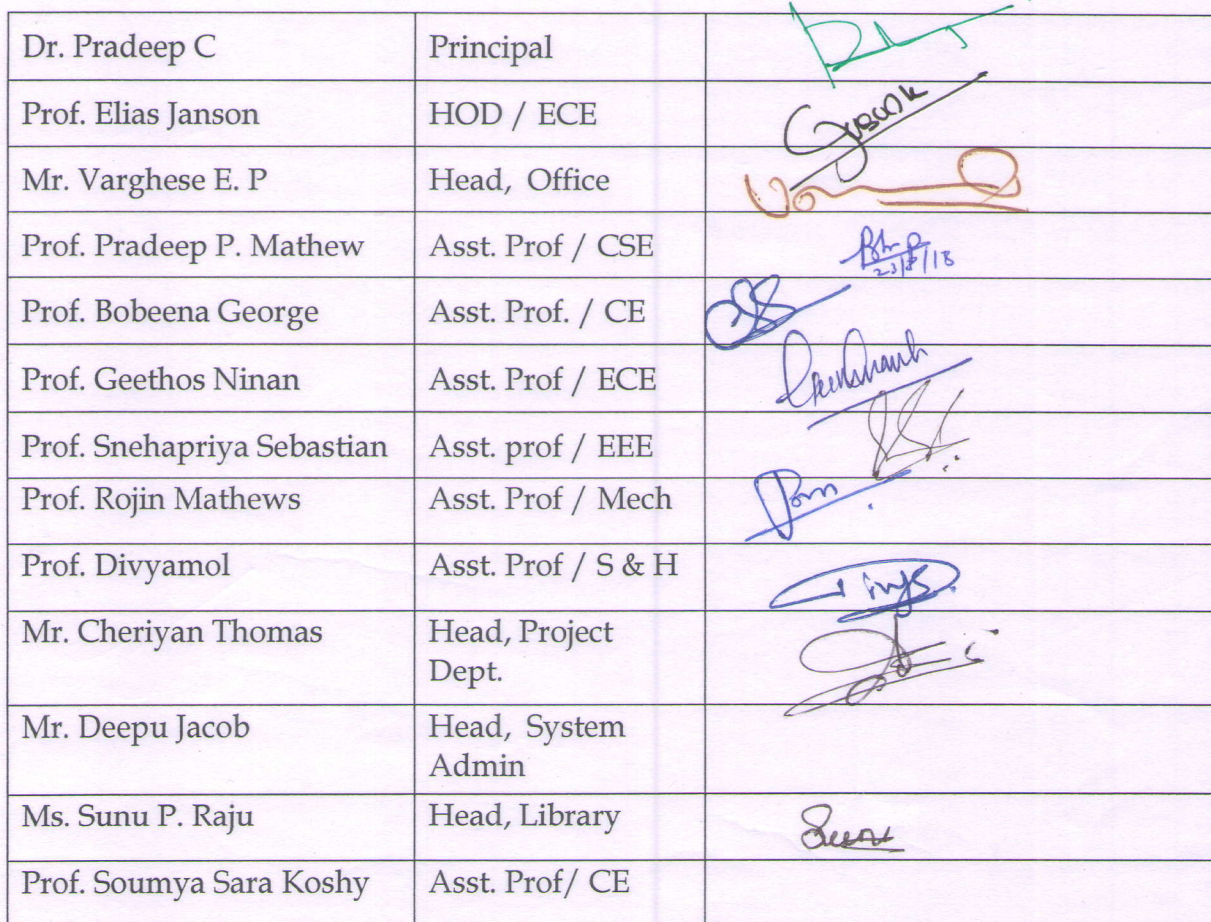 Dr. Pradeep C Principal
Prof. Elias Janson HOD / ECE
Mr. Varghese E. P Head, Office
Prof. Pradeep P. Mathew Asst. Prof / CSE
23/8/18
Prof. Bobeena George Asst. Prof. / CE
Prof. Geethos Ninan Asst. Prof / ECE
Prof. Snehapriya Sebastian Asst. prof / EEE
Prof. Rojin Mathews Asst. Prof / Mech
Prof. Divyamol Asst. Prof / S & H
Mr. Cheriyan Thomas Head, Project
Dept.
Mr. Deepu Jacob Head, System
Admin
Ms. Sunu P. Raju Head, Library
Prof. Soumya Sara Koshy Asst. Prof/ CE